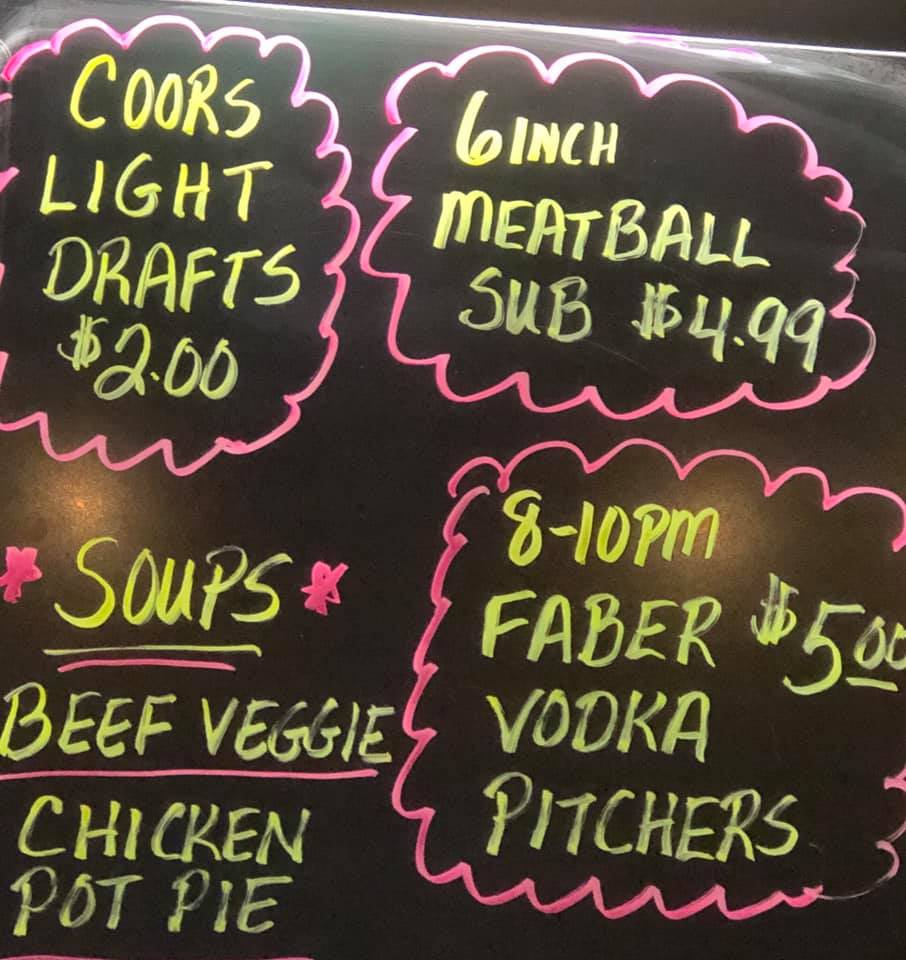 COORS
LIGHT
DRAFTS
$2.00
6 INCH
MEATBALL
SUB $4.99
SOUPS
BEEF VEGGIE
CHICKEN
POT PIE
8-10PM
FABER $5.00
VODKA
PITCHERS